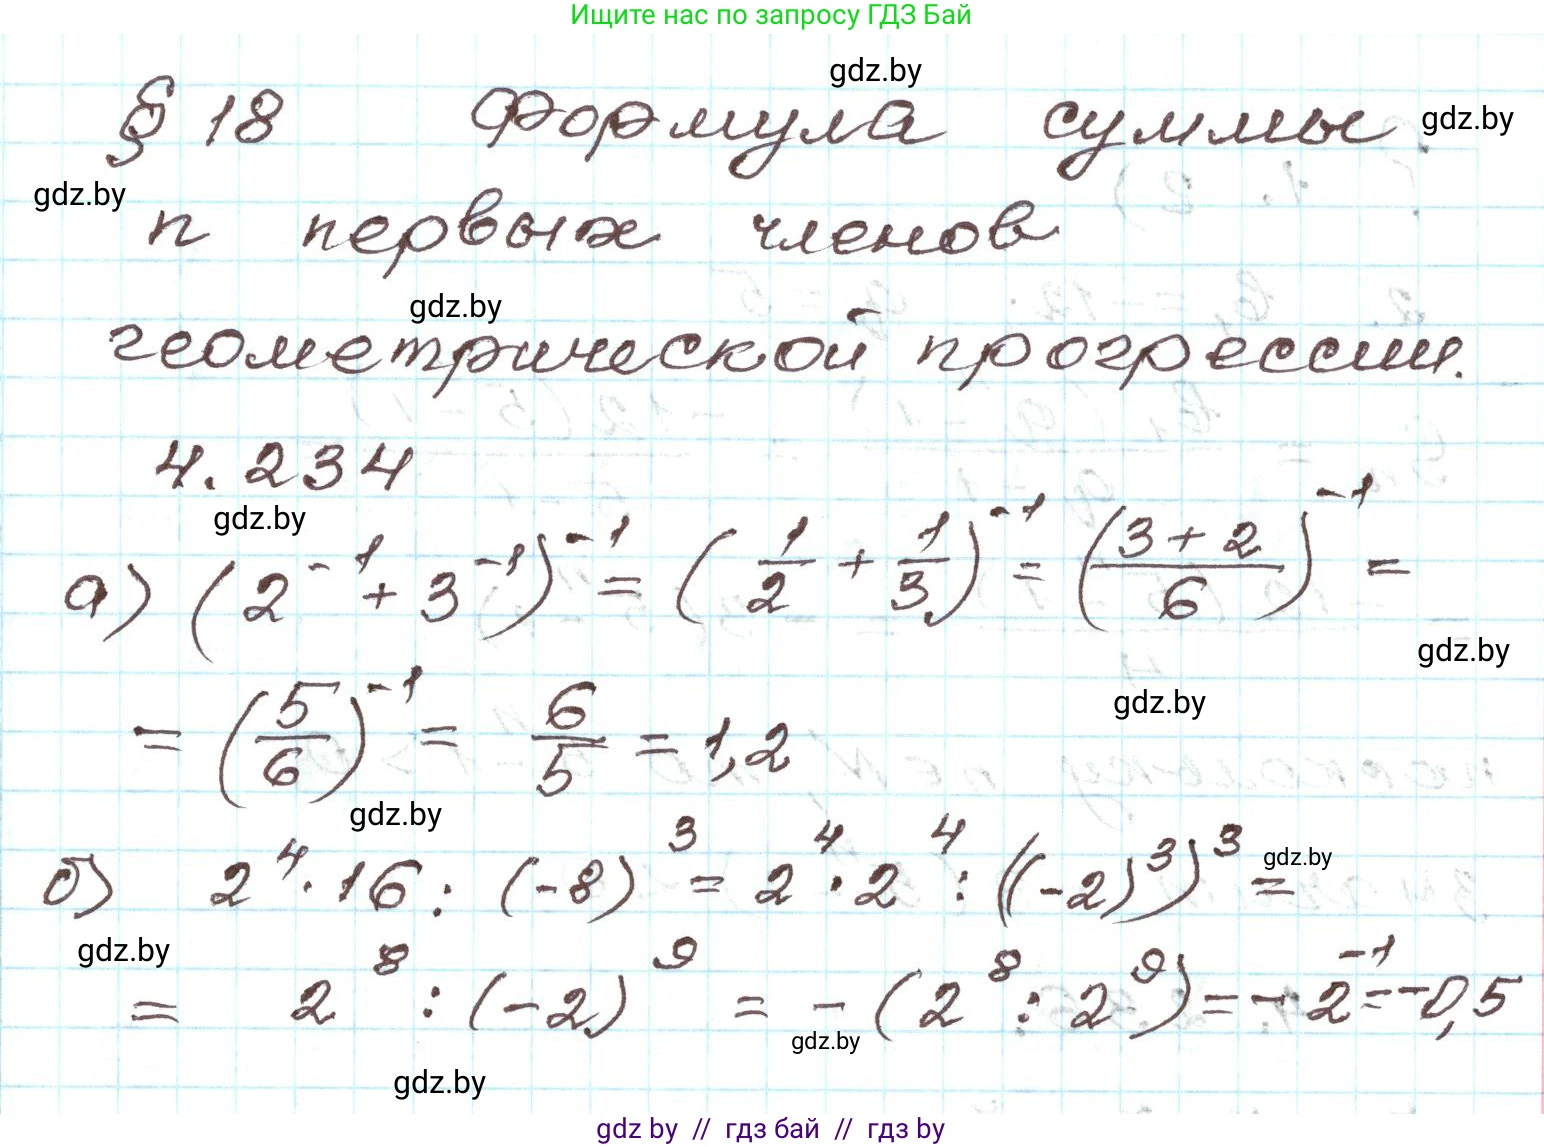 Ищите нас по запросу ГДЗ Бай
gdz.by
§ 18 Формула суммы
gdz.by
gdz.by
n первых членов
gdz.by
геометрической прогрессии.
4.234
gdz.by
а) (2^-1 + 3^-1)^-1 = (1/2 + 1/3)^-1 = ((3+2)/6)^-1 =
gdz.by
= (5/6)^-1 = 6/5 = 1,2
gdz.by
gdz.by
б) 2^4 · 16 : (-8)^3 = 2^4 · 2^4 : ((-2)^3)^3 =
gdz.by
gdz.by
= 2^8 : (-2)^9 = - (2^8 : 2^9) = - 2^-1 = -0,5
gdz.by
gdz.by
gdz by // гдз бай // гдз by